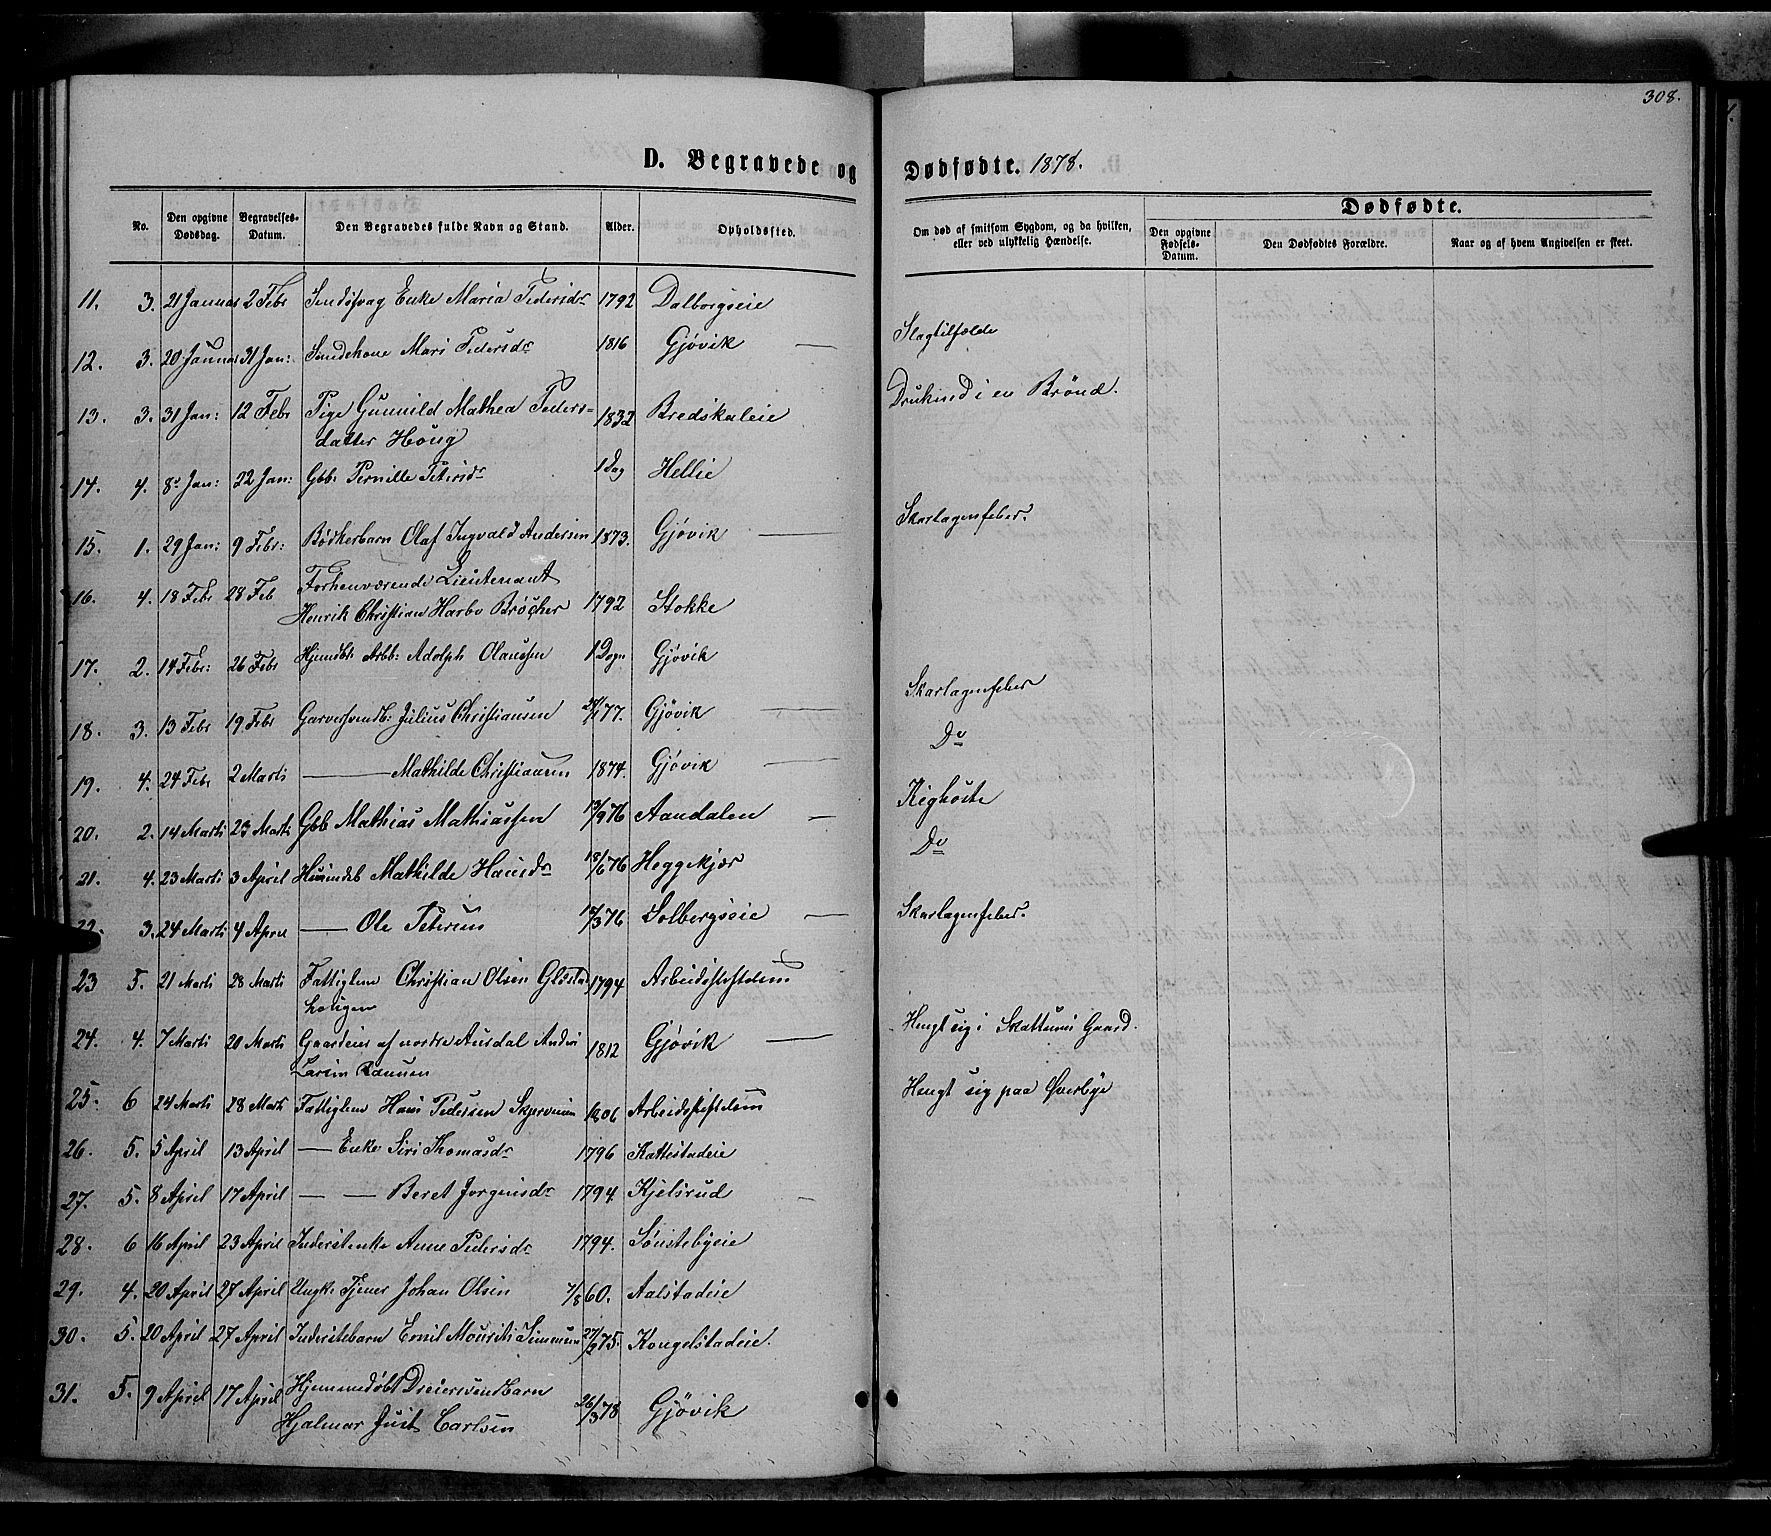 308.
D. Begravede og Dødfødte. 1878.
No. Den opgivne Dødsdag. Begravelses-Datum. Den Begravedes fulde Navn og Stand. Alder. Opholdssted. Om død af smitsom Sygdom, og da hvilken, eller ved ulykkelig Hændelse. Dødfødte.
Den opgivne Fødsels-Datum. Den Dødfødtes Forældre. Naar og af hvem Angivelsen er skeet.
11. 3. 21 Januar 2 Febr Enke Maria Pedersdr 1792 Dalborgseie
12. 3. 20 Januar 31 Jan: Mari Pedersdr 1816 Gjøvik — Slagtilfælde
13. 3. 31 Jan: 12 Febr Pige Gunnild Mathea Peders-
datter Houg 1832 Bredskaleie Druknet i en Brønd.
14. 4. 8de Jan: 22 Jan: Gbb: Pernille Petersdr 1 Dag Hellie
15. 1. 29 Jan: 9 Febr: Bødkerbarn Olaf Ingvald Andersen 1873. Gjøvik — Skarlagensfeber.
16. 4. 18 Febr 28 Feb Forhenværende Lieutenant
Henrik Christian Harbo Bröcher 1792 Stokke
17. 2. 14 Febr: 26 Febr Hjemdbt Arbb: Adolph Olaussen 1 Døgn Gjøvik
18. 3. 13 Febr 19 Febr Garversvendb: Julius Christiansen 77. Gjøvik — Skarlagensfeber
19. 4. 24 Febr 2 Marts — Mathilde Christiansen 1874. Gjøvik — Do
20. 2. 14 Marts 23 Marts Gbb Mathias Mathiassen 13/9 76 Aandalen — Kighoste
21. 4. 23 Marts 3 April Huusmdsb Mathilde Hansdr 18/6 76 Heggekjær Do
22. 3. 24 Marts 4 April — Ole Petersen /3 76 Solbergseie — Skarlagensfeber.
23 5. 21 Marts 28 Marts Fattiglem Christian Olsen
1794 Arbeidsstiftelsen
24. 4. 7 Marts 20 Marts Gaardeier af nordre Aurdal Anders
Larsen 1812 Gjøvik — Hengt sig i Skattums Gaard.
25. 6 24 Marts 28 Marts Fattiglem Hans Pedersen 1806 Arbeidsstiftelsen Hengt sig paa Øverbye
26. 5. 5 April 13 April — Enke Siri Thomasdr 1796 Kattestadeie
27. 5. 8 April 17 April — — Beret Jorgensdr 1794. Kjelsrud —
28. 6 16 April 23 April Inderstenke Anne Pedersdr 1794. Sønstebyeie
29. 4. 20 April 27 April Ungk: Tjener Johan Olsen 7/8 60. Aalstadeie
30. 5. 20 April 27 April Inderstebarn Emil Mouritz 75. Kongelstadeie.
31. 5. 9 April 17 April Hjemmedøbt Dreiersvenbarn
Hjalmar Just Carlsen 26/3 78 Gjøvik